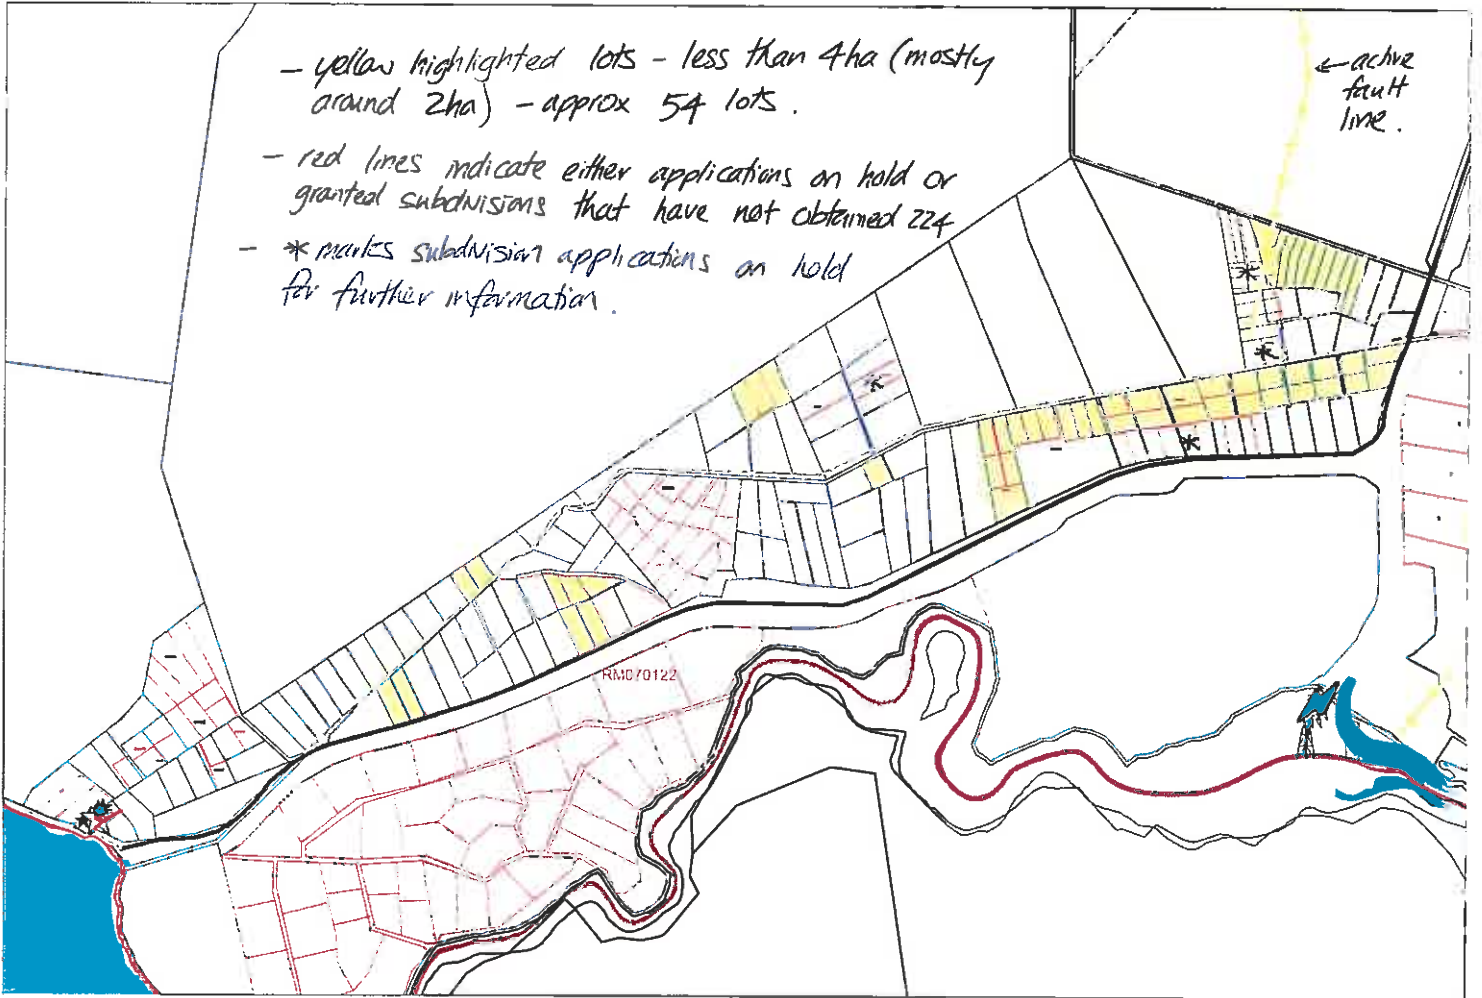 - yellow highlighted lots - less than 4ha (mostly
around 2ha) - approx 54 lots.
- red lines indicate either applications on hold or
granted subdivisions that have not obtained 224
- * marks subdivision applications on hold
for further information.
← active
fault
line.
RM070122